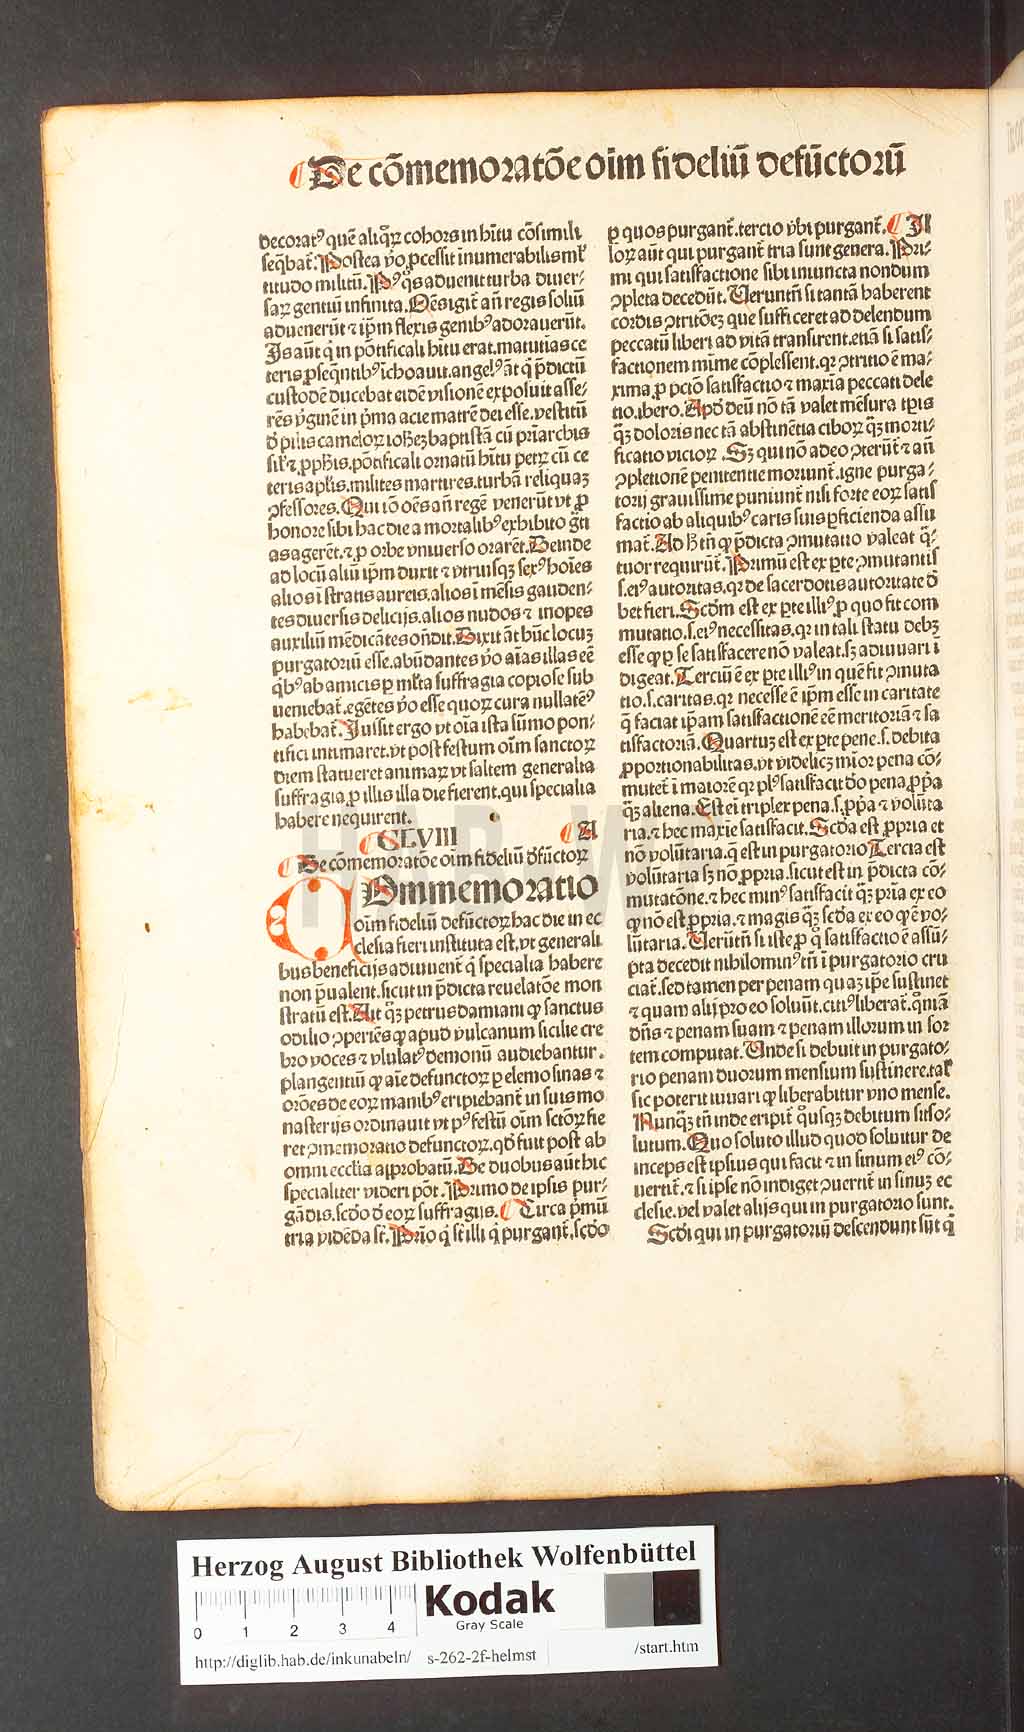 De cõmemoratõe oim̄ fideliũ defũctorũ
decoratꝰ quẽ aliqꝝ cohors in hr̃tu cõsimili
seq̃bat̃. Postea ṽo ꝓcessit inumerabilis ml̃
titudo militũ. Pꝰ q̃s aduenit turba diuer⸗
saꝝ gentiũ infinita. Oẽs igit̃ añ regis soliũ
aduenerũt ⁊ ip̃m flexis genibꝰ adorauerũt.
Is aũt q̇ in põtificali hr̃tu erat. matutinas ce
teris ꝓseq̃ntibꝰ ichoauit. angelꝰ aũt q̇ p̃dictũ
custodẽ ducebat eidẽ visionẽ exposuit asse⸗
rẽs ṽginẽ in p̃ma acie matrẽ dei esse. vestitũ
ð pilis cameloꝝ iohẽꝫ baptistã cũ pr̃iarchis
sil̃r ⁊ ꝓph̃is. põtificali ornatũ hr̃tu petꝝ cũ ce
teris apl̃is. milites martires. turbã reliquaꝫ
ꝯfessores. Qui iõ oẽs añ regẽ venerũt vt ꝓ
honore sibi hac die a mortalibꝰ exhibito gr̃ti
as agerẽt. ⁊ ꝓ orbe vniuerso orarẽt. Deinde
ad locũ aliũ ip̃m duxit ⁊ vtriusqꝫ sexꝰ hoĩes
alios ĩ stratis aureis. alios ĩ mẽsis gauden⸗
tes diuersis delicijs. alios nudos ⁊ inopes
auxiliũ mẽdicãtes oñdit. Dixit ãt hũc locuꝫ
purgatoriũ esse. abũdantes ṽo aĩas illas eẽ
q̃bꝰ ab amicis ꝑ ml̃ta suffragia copiose sub
ueniebat̃. egẽtes ṽo esse quoꝝ cura nullatẽꝰ
habebat̃. Iussit ergo vt oĩa ista sũmo pon⸗
tifici intimaret. vt post festum oim̄ sanctoꝝ
diem statueret animaꝝ vt saltem generalia
suffragia ꝓ illis illa die fierent. qui specialia
habere nequirent.
CLVIII A
De cõmemoratõe oim̄ fideliũ ðfũctoꝝ
Ommemoratio
oim̄ fideliũ defũctoꝝ hac die in ec
clesia fieri instituta est. vt generali
bus beneficijs adiuuent̃ q̇ specialia habere
non p̃ualent. sicut in p̃dicta reuelatõe mon
stratũ est. Ait q̃ꝫ petrus damiani ꝙ sanctus
odilio ꝯperiẽs ꝙ apud vulcanum sicilie cre
bro voces ⁊ vlulatꝰ demonũ audiebantur.
plangentiũ ꝙ aĩe defunctoꝝ ꝑ elemosinas ⁊
orões de eoꝝ manibꝰ eripiebant̃ in suis mo
nasterijs ordinauit vt pꝰ festũ oim̄ sctõꝝ fie
ret ꝯmemoratio defunctoꝝ. qd̃ fuit post ab
omni ecclĩa approbatũ. De duobus aũt hic
specialiter videri põt. Primo de ipsis pur⸗
gãdis. scðo ð eoꝝ suffragijs. Circa p̃mũ
tria vidẽda st̃. Prĩo q̇ st̃ illi q̇ purgant̃. scðo
ꝑ quos purgant̃. tercio vbi purgant̃. Il
loꝝ aũt qui purgant̃ tria sunt genera. Pri⸗
mi qui satisfactione sibi iniuncta nondum
ꝯpleta decedũt. Veruntñ si tantã haberent
cordis ꝯtritõeꝫ que sufficeret ad delendum
peccatũ liberi ad vitã transirent. etiã si satis⸗
factionem minime cõplessent. qꝛ ꝯtritio ẽ ma⸗
xima ꝓ pctõ satisfactio ⁊ maxĩa peccati dele
tio. ibero. Apd̃ deũ nõ tã valet mẽsura tp̃is
q̃ꝫ doloris nec tã abstinẽtia ciboꝝ q̃ꝫ morti⸗
ficatio vicioꝝ. Sꝫ qui nõ adeo ꝯterũt̃ ⁊ añ
ꝯpletionẽ penitentie moriunt̃. igne purga⸗
torij grauissime puniunt̃ nisi forte eoꝝ satis
factio ab aliquibꝰ caris suis ꝑficienda assu
mat̃. Ad h̃ tñ ꝙ p̃dicta ꝯmutatio valeat q̃⸗
tuor requirũt̃. Primũ est ex ꝑte ꝯmutantis
.s. eiꝰ autoritas. qꝛ de sacerdotis autoritate ð
bet fieri. Scðm est ex ꝑte illiꝰ ꝓ quo fit com
mutatio. s. eiꝰ necessitas. qꝛ in tali statu debꝫ
esse ꝙ ꝑ se satisfacere nõ valeat. sꝫ adiuuari ĩ
digeat. Terciũ ẽ ex ꝑte illiꝰ in quẽ fit ꝯmuta
tio. s. caritas. qꝛ necesse ẽ ip̃m esse in caritate
q̃ faciat ip̃am satisfactionẽ eẽ meritoriã ⁊ sa
tisfactoriã. Quartuꝫ est ex ꝑte pene. s. debita
ꝓportionabilitas. vt videlicꝫ mĩor pena cõ⸗
mutet̃ ĩ maiorẽ qꝛ plꝰ satisfacit ðo pena ꝓp̃a
q̃ꝫ aliena. Est eĩ triplex pena. s. ꝓp̃a ⁊ volũta
ria. ⁊ hec maxie satisfacit. Scða est ꝓpria et
nõ volũtaria. q̃ est in purgatorio. Tercia est
volũtaria sꝫ nõ ꝓpria. sicut est in p̃dicta cõ⸗
mutatõne. ⁊ hec minꝰ satisfacit q̃ꝫ pr̃ia ex eo
ꝙ nõ est ꝓpria. ⁊ magis q̃ꝫ scða ex eo ꝙ ẽ vo⸗
lũtaria. Verũtñ si iste ꝓ q̃ satisfactio ẽ assũ⸗
pta decedit nihilominꝰ tñ ĩ purgatorio cru
ciat̃. sed tamen per penam quaꝫ ip̃e sustinet
⁊ quam alij pro eo soluũt. citiꝰ liberat̃. qm̃iã
dñs ⁊ penam suam ⁊ penam illorum in sor
tem computat. Unde si debuit in purgato⸗
rio penam duorum mensium sustinere. tal̃r
sic poterit iuuari ꝙ liberabitur vno mense.
Nunq̃ꝫ tñ inde eripit̃ quousqꝫ debitum sit so⸗
lutum. Quo soluto illud quod soluitur de
inceps est ipsius qui facit ⁊ in sinum eiꝰ cõ⸗
uertit̃. ⁊ si ipse nõ indiget ꝯuertit̃ in sinuꝫ ec
clesie. vel valet alijs qui in purgatorio sunt.
Scði qui in purgatoriũ descendunt sũt q̇
Herzog August Bibliothek Wolfenbüttel
0 1 2 3 4
Kodak
Gray Scale
http://diglib.hab.de/inkunabeln/ s-262-2f-helmst /start.htm